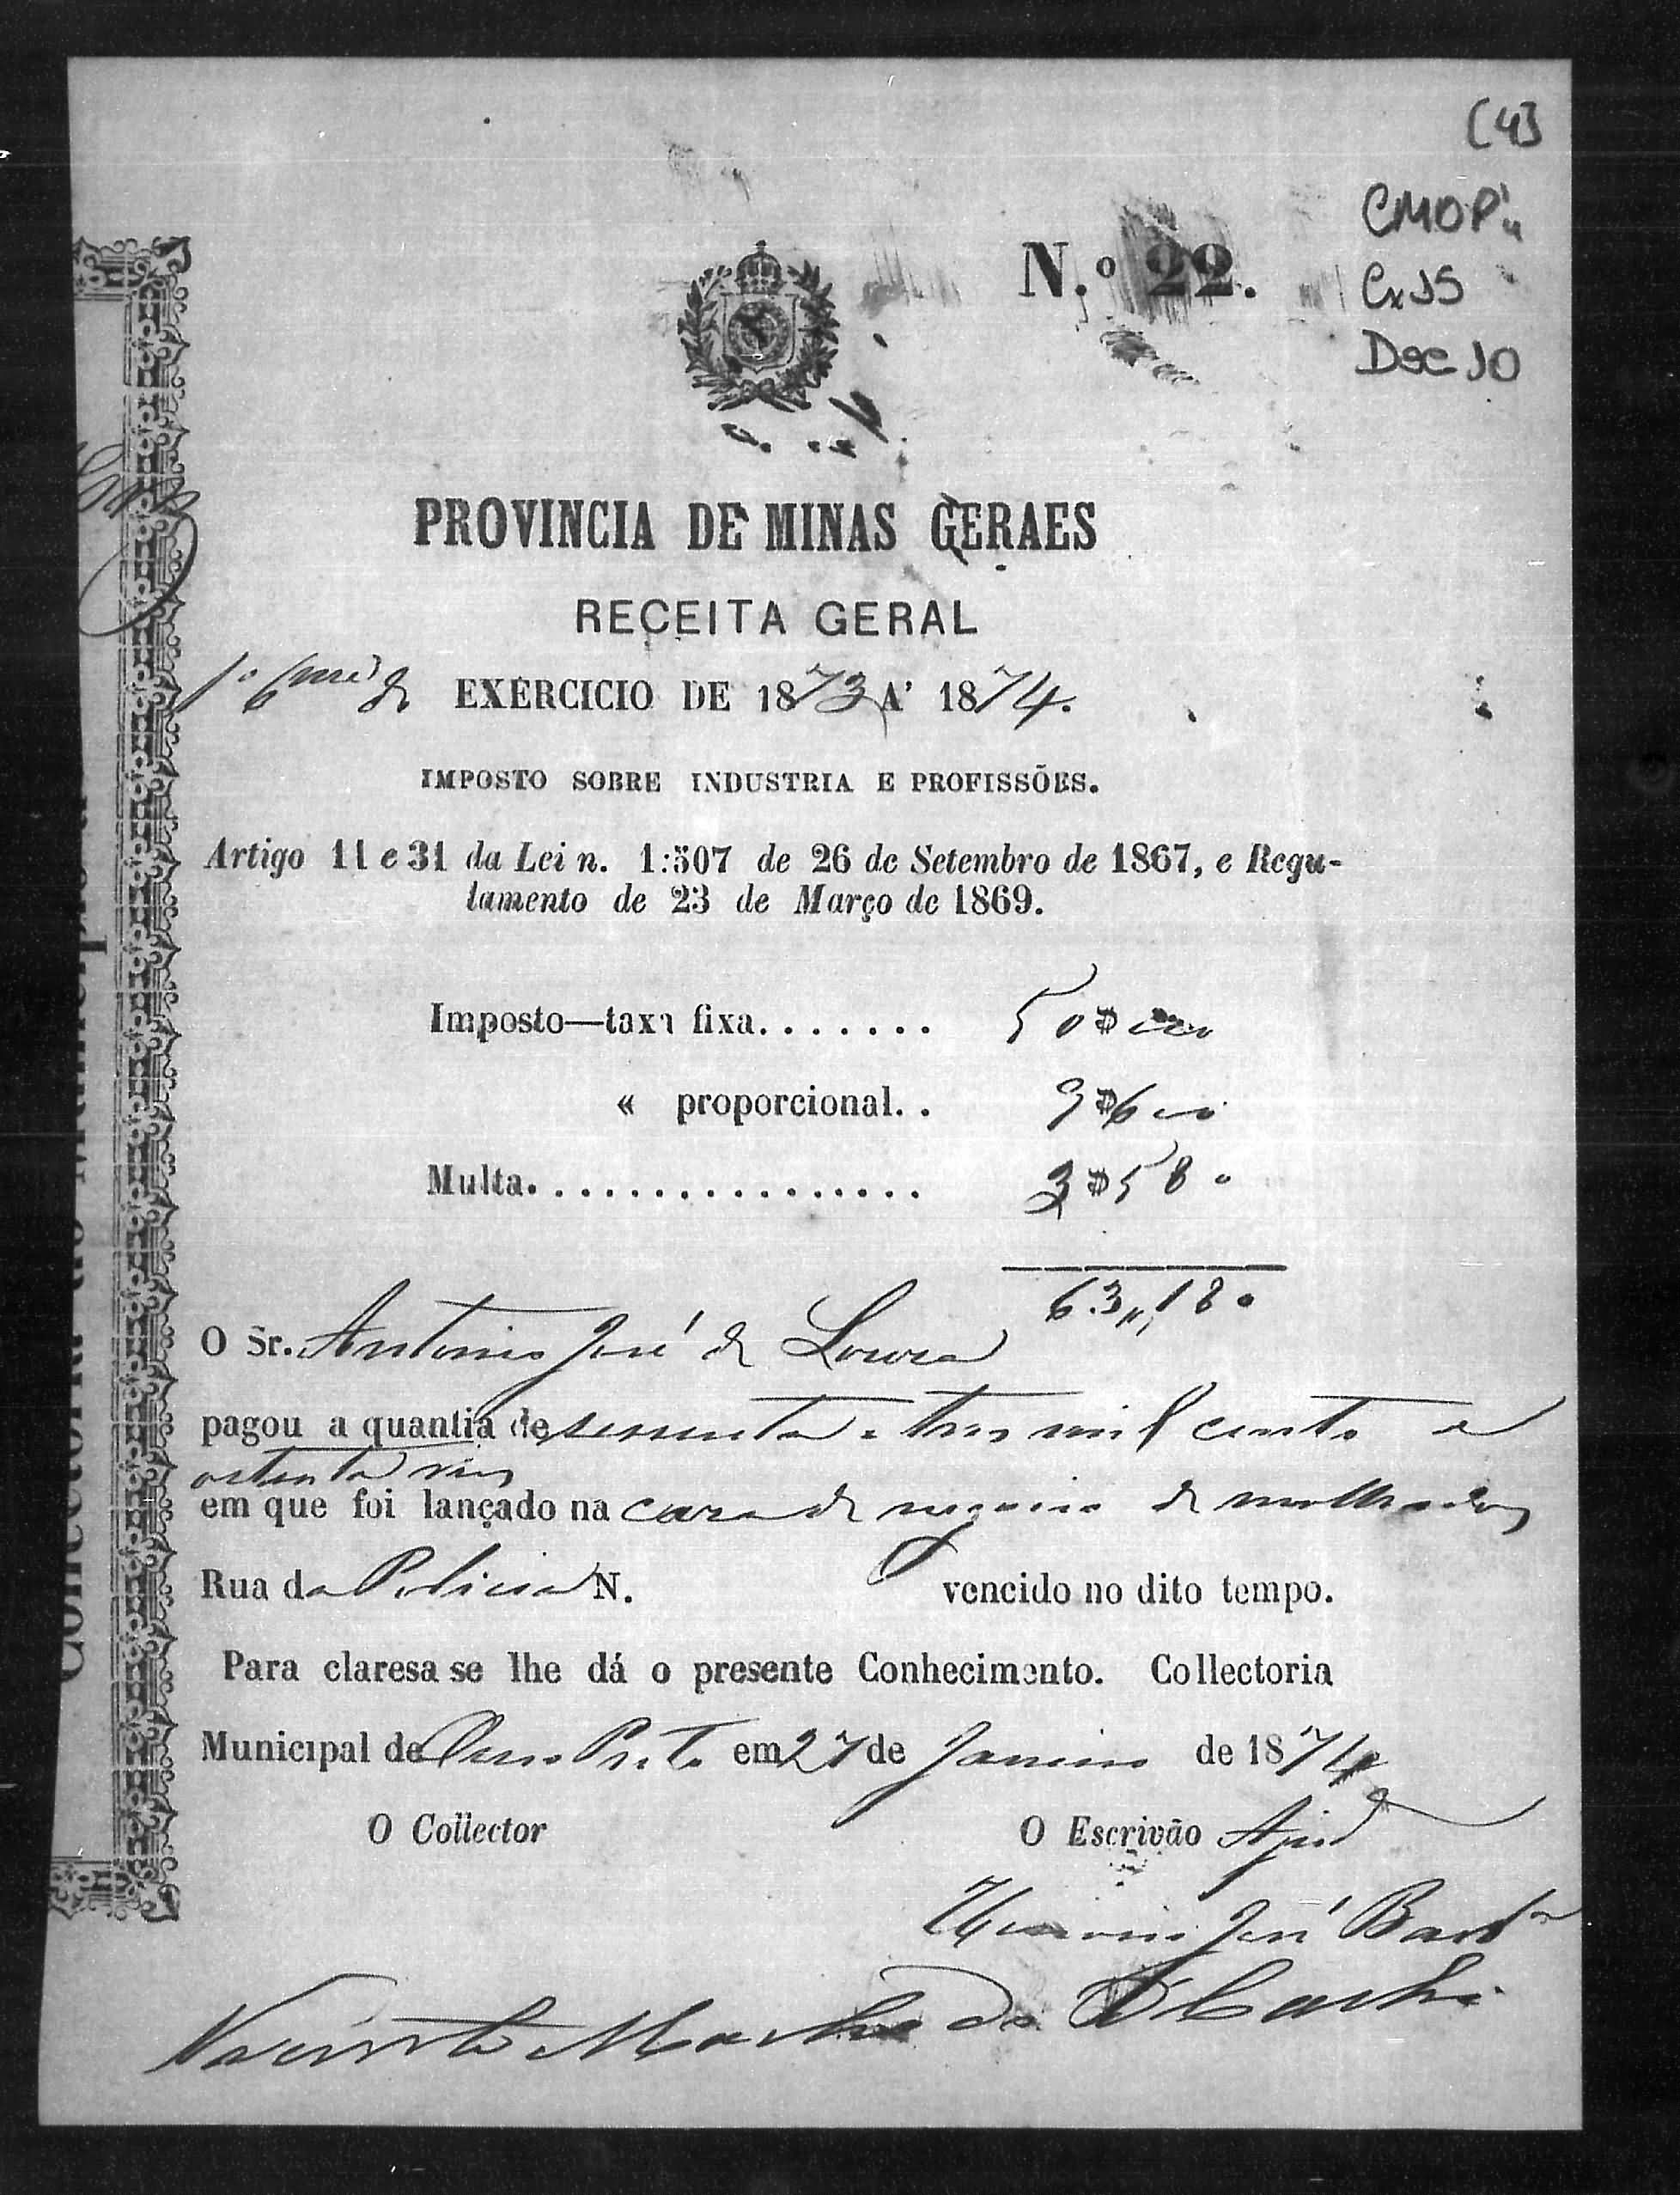 (4)
CMOP
Cx 15
Doc 10
N.º 22.
PROVINCIA DE MINAS GERAES
RECEITA GERAL
1º 6 EXERCICIO DE 1873 A' 1874.
IMPOSTO SOBRE INDUSTRIA E PROFISSÕES.
Artigo 11 e 31 da Lei n. 1:507 de 26 de Setembro de 1867, e Regu-
lamento de 23 de Março de 1869.
Imposto—taxa fixa....... 50$000
« proporcional.. 9$600
Multa................ 3$580
63,,180
O Sr. Antonio José de
pagou a quantia de sessenta e tres mil cento e
oitenta reis
em que foi lançado na casa de negocio de molhados
Rua da Policia N. vencido no dito tempo.
Para claresa se lhe dá o presente Conhecimento. Collectoria
Municipal de Ouro Preto em 27 de Janeiro de 1874
O Collector O Escrivão Ajud
José Barb
Vicente Machado